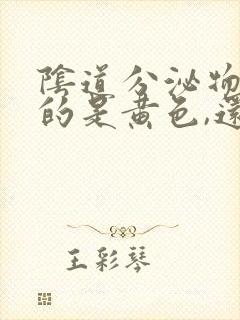 陰道分泌物
的是黃色,還
王彩琴